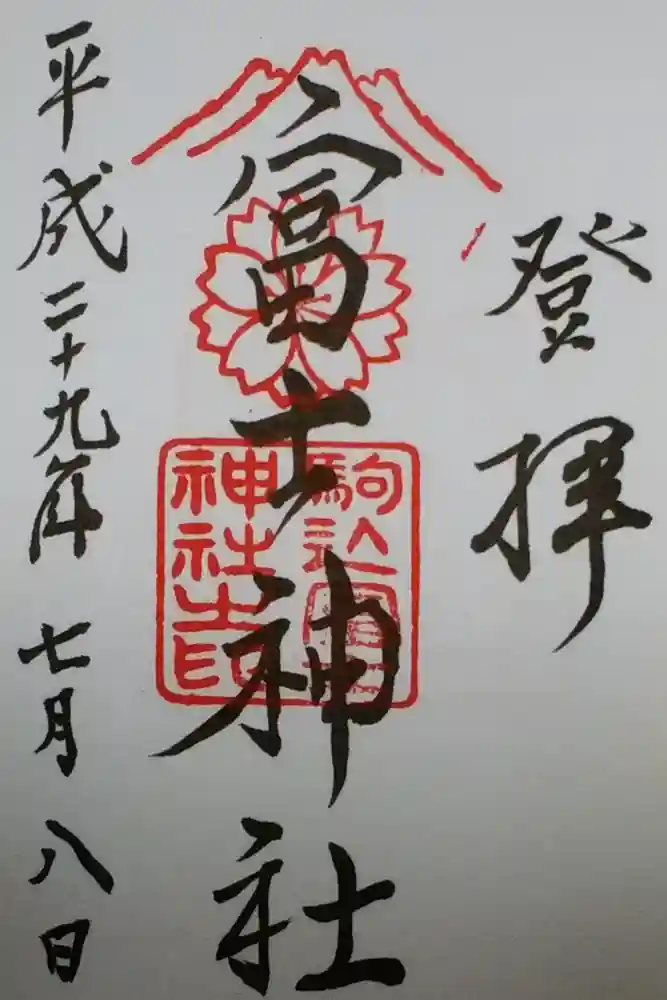 登拝
冨士神社
駒込
神社之印
平成二十九年 七月 八日